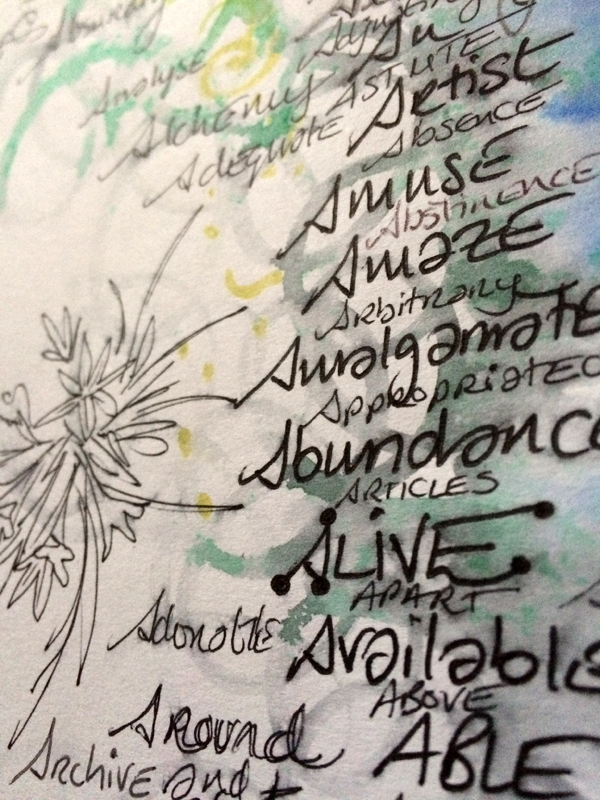 Analyse
Alchemy ASTUTE
Artist
Adequate Absence
Amuse
Abstinence
Amaze
Arbitrary
Amalgamate
Appropriated
Abundance
ARTICLES
ALiVE
APART
Available
ABOVE
Around
ABLE
Archive and